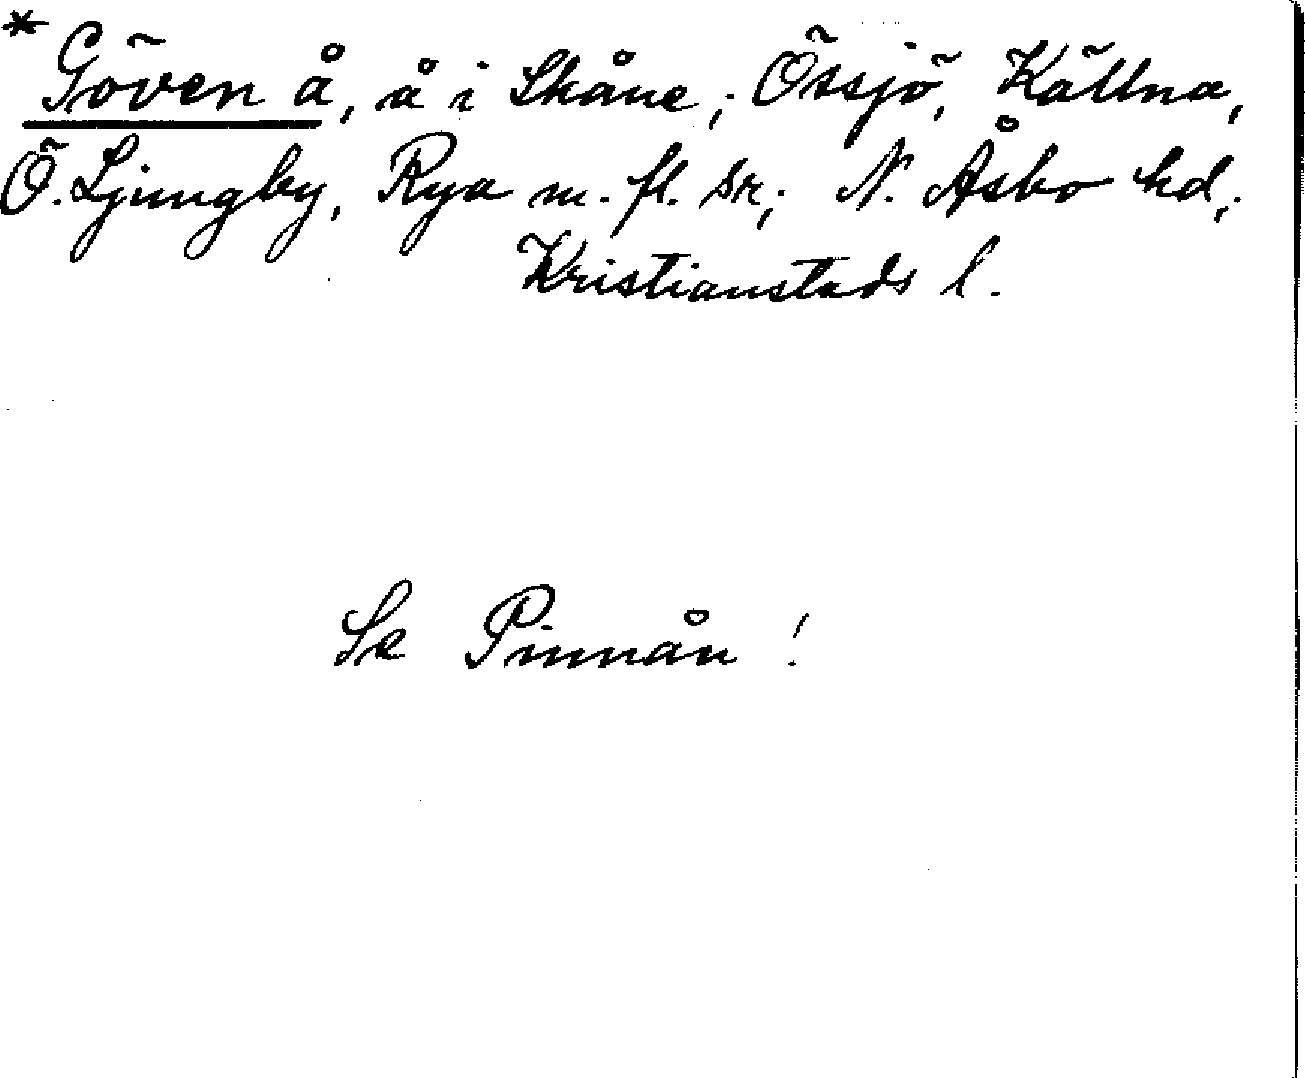 * Göven å, å i Skåne; Össjö, Källna,
Ö. Ljungby, Rya m. fl. sr; N. Åsbo hd;
Kristianstads l.
Se Pinnån!